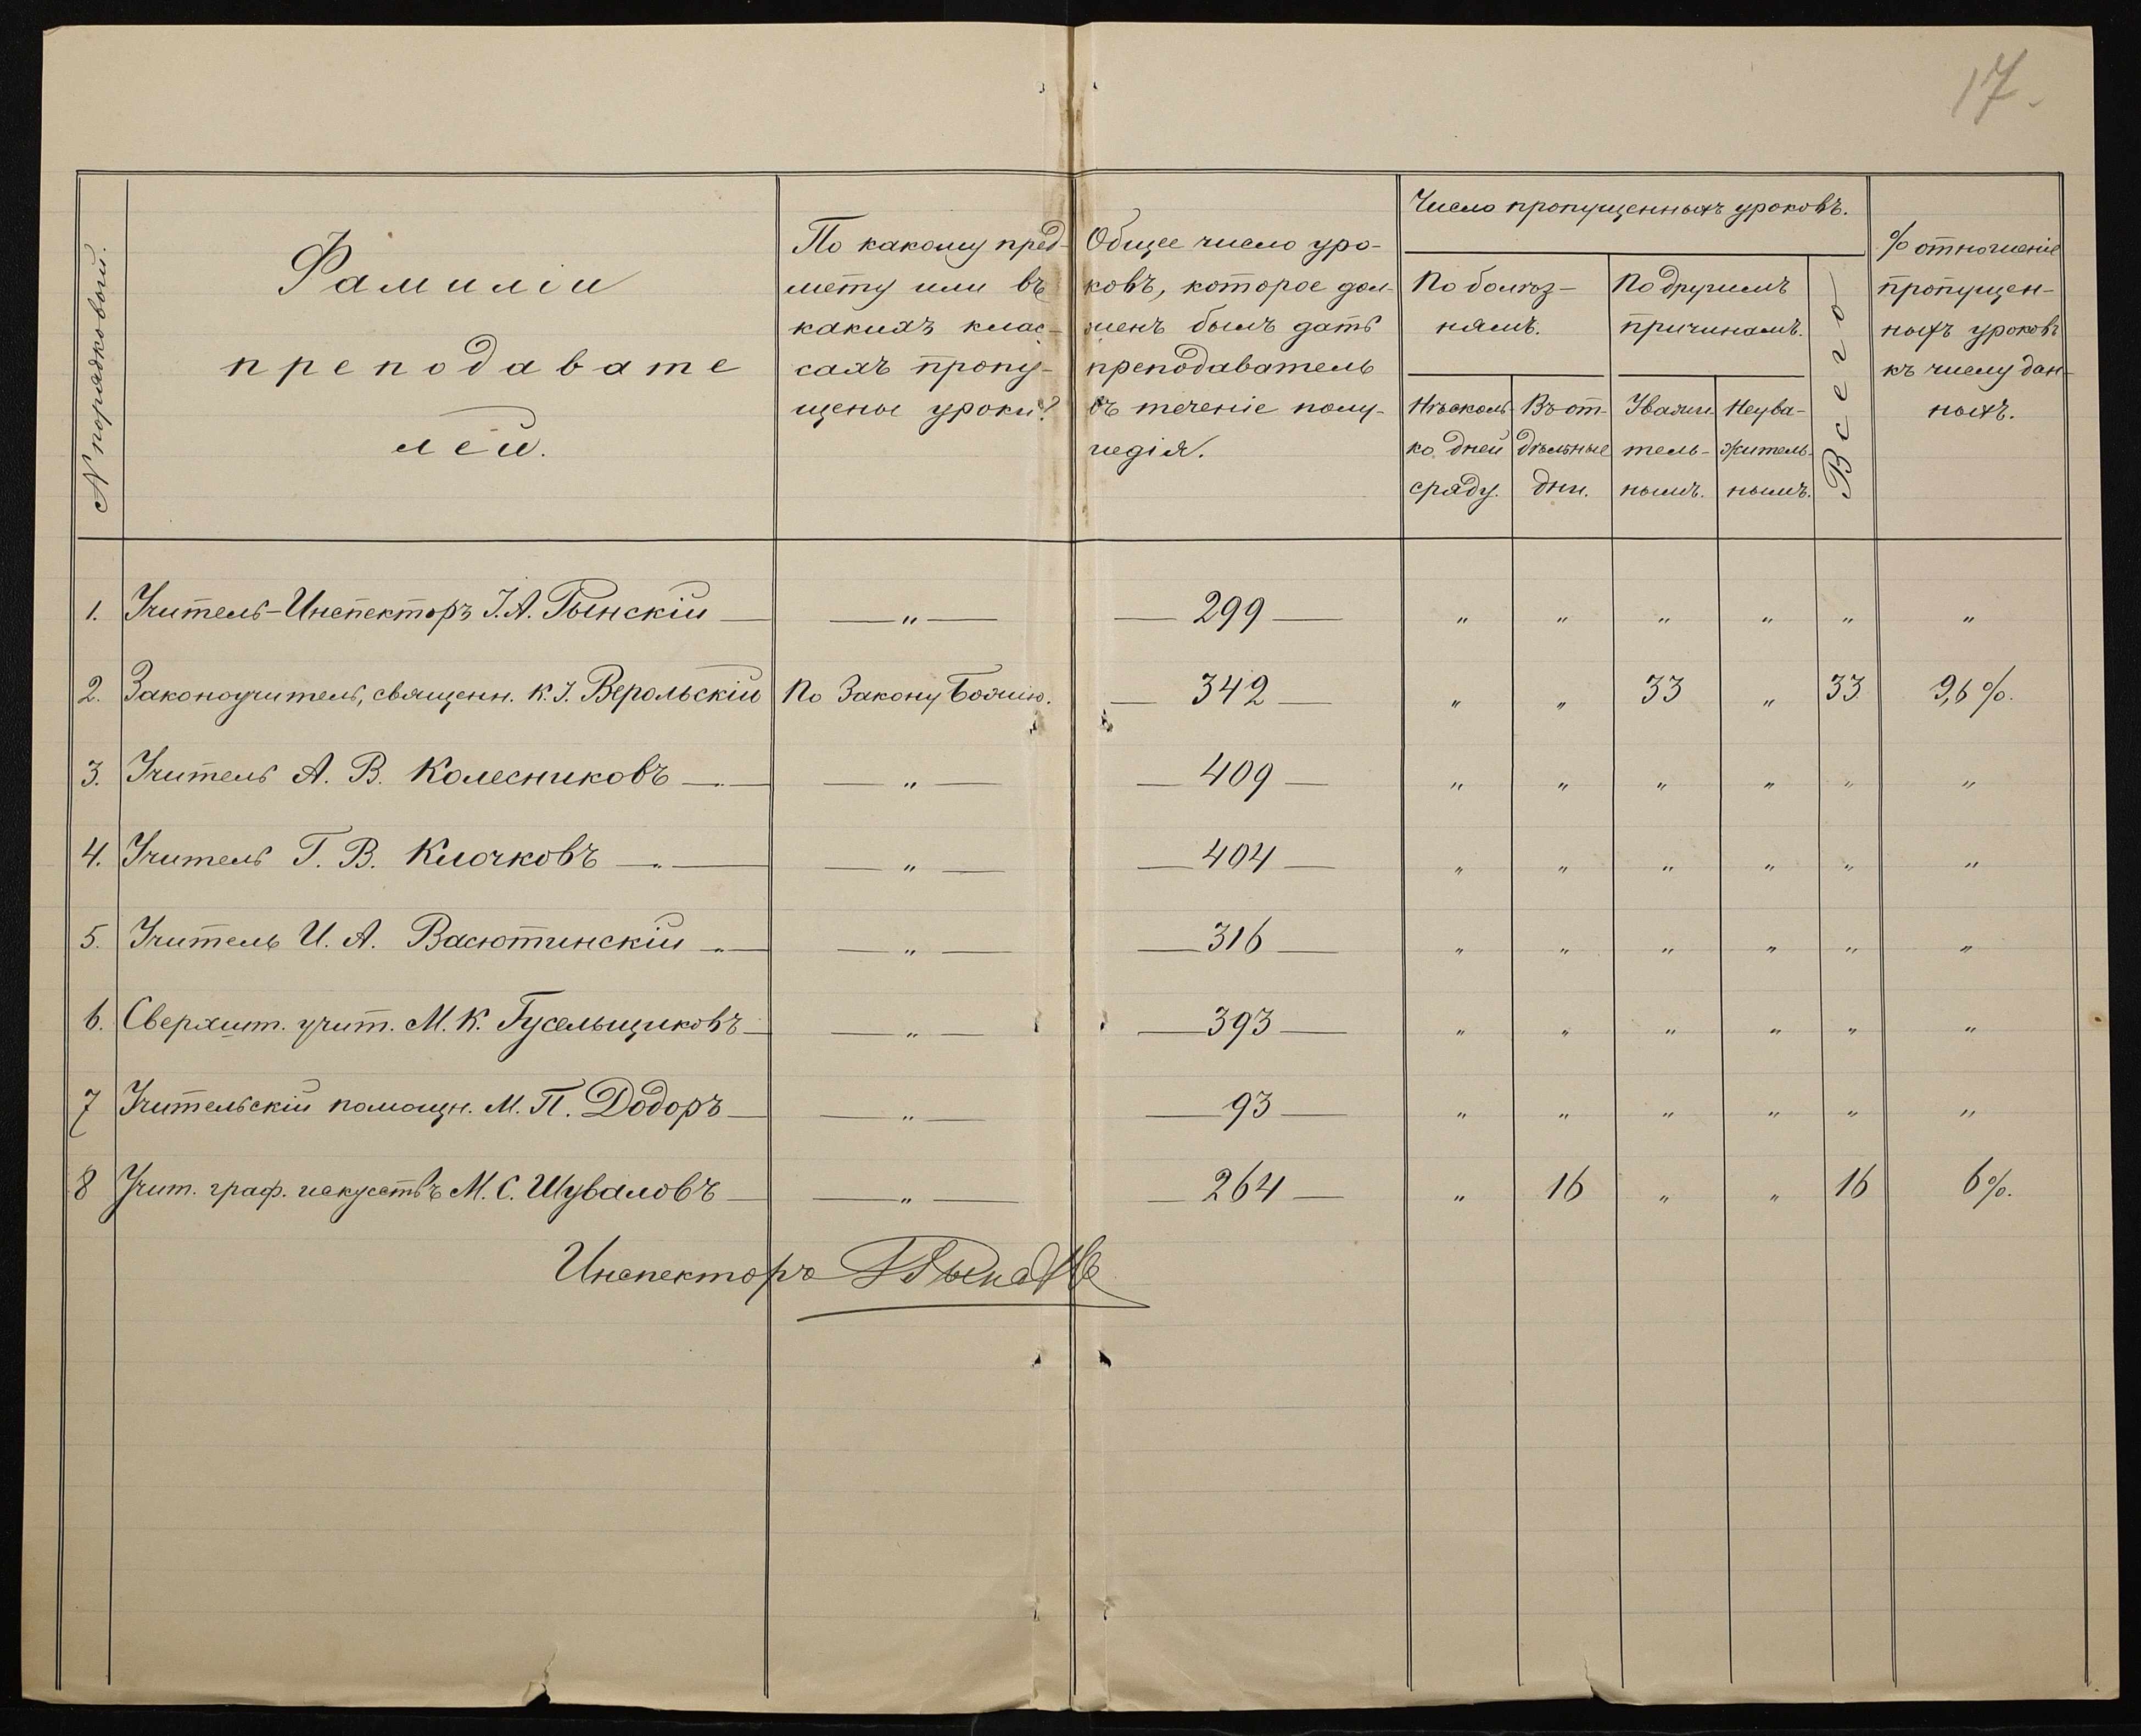 17.
№ порядковый.
Фамиліи
преподавате
лей.
По какому пред-
мету или въ
какихъ клас-
сахъ пропу-
щены уроки?
Общее число уро-
ковъ, которое дол-
женъ былъ дать
преподаватель
въ теченіе полу-
годія.
Число пропущенныхъ уроковъ.
По болѣз-
нямъ.
По другимъ
причинамъ.
Нѣсколь-
ко дней
сряду.
Въ от-
дѣльные
дни.
Уважи
тель-
нымъ.
Неува-
житель-
нымъ.
Всего
% отношеніе
пропущен-
ныхъ уроковъ
къ числу дан-
ныхъ.
1. Учитель-Инспекторъ І. А. Рынскій — — „ — — 299 — „ „ „ „ „ „
2. Законоучитель, священн. К. І. Верольскій По Закону Божію. — 342 — „ „ 33 „ 33 9,6 %.
3. Учитель А. В. Колесниковъ — — „ — — 409 — „ „ „ „ „ „
4. Учитель Г. В. Клочковъ — — „ — — 404 — „ „ „ „ „ „
5. Учитель И. А. Васютинскій — — „ — — 316 — „ „ „ „ „ „
6. Сверхшт. учит. М. К. Гусельщиковъ — — „ — — 393 — „ „ „ „ „ „
7 Учительскій помощн. М. П. Додоръ — — „ — — 93 — „ „ „ „ „ „
8 Учит. граф. искусствъ М. С. Шуваловъ — — „ — — 264 — „ 16 „ „ 16 6 %.
Инспекторъ